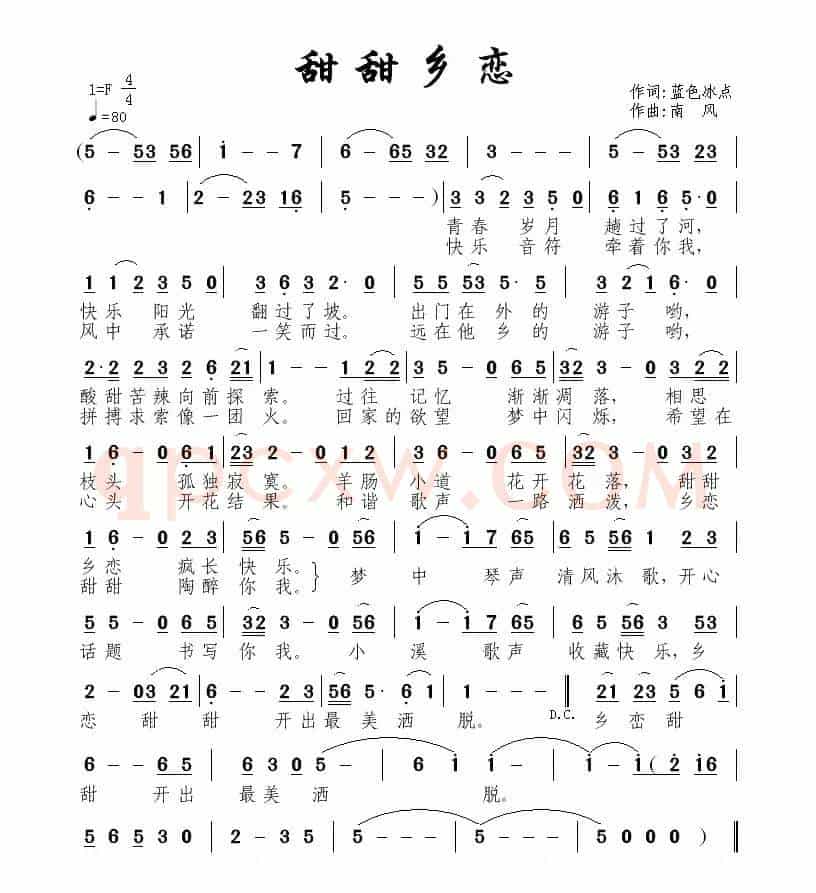 甜甜乡恋
1=F 4/4
♩=80
作词:蓝色冰点
作曲:南 风
(5 – 53 56 | i – – 7 | 6 – 65 32 | 3 – – – | 5 – 53 23 |
6 – – 1 | 2 – 23 16 | 5 – – –) | 3 3 2 3 5 0 | 6 1 6 5· 0 |
青春 岁月 趟过了河,
快乐 音符 牵着你我,
1 1 2 3 5 0 | 3 6 3 2· 0 | 5 5 53 5· 5 | 3 2 1 6· 0 |
快乐 阳光 翻过了坡。 出门在外的 游子 哟,
风中 承诺 一笑而过。 远在他乡的 游子 哟,
2· 2 2 3 2 6 21 | 1 – – 1 2 2 | 3 5 – 0 5 6 5 | 32 3 – 0 3 2 2 |
酸甜苦辣向前探 索。 过往 记忆 渐渐凋 落, 相思
拼搏求索像一团 火。 回家的欲望 梦中闪 烁, 希望在
1 6 – 0 6 1 | 23 2 – 0 1 2 | 3 6 – 0 6 5 | 32 3 – 0 3 2 |
枝头 孤独寂 寞。 羊肠 小道 花开花 落, 甜甜
心头 开花结 果。 和谐 歌声 一路洒 泼, 乡恋
1 6 – 0 2 3 | 56 5 – 0 3 56 | i – i 7 65 | 6 5 56 1 0 6 5 |
乡恋 疯长快 乐。} 梦 中 琴声 清风沐 歌,开心
甜甜 陶醉你 我。
5 5 – 0 6 5 | 3 2 – 0 3 56 | i – i 7 65 | 6 5 56 3 53 |
话题 书写你 我。 小 溪 歌声 收藏快乐,乡
2 – 03 21 | 6 – – 2 3 | 56 5· 6 – | 1 – – – ‖ 21 23 5 6i |
恋 甜 甜 开出最 美 洒 脱。 D.C. 乡 峦 甜
6 – – 6 5 | 6 3 0 5 | 6 i i | i – – i( 2 i6 |
甜 开出 最美 洒 脱。
5 6 5 3 0 | 2 – 3 5 | 5 – – – | 5 – – – | 5 0 0 0 ) ‖
qpcxw.COM